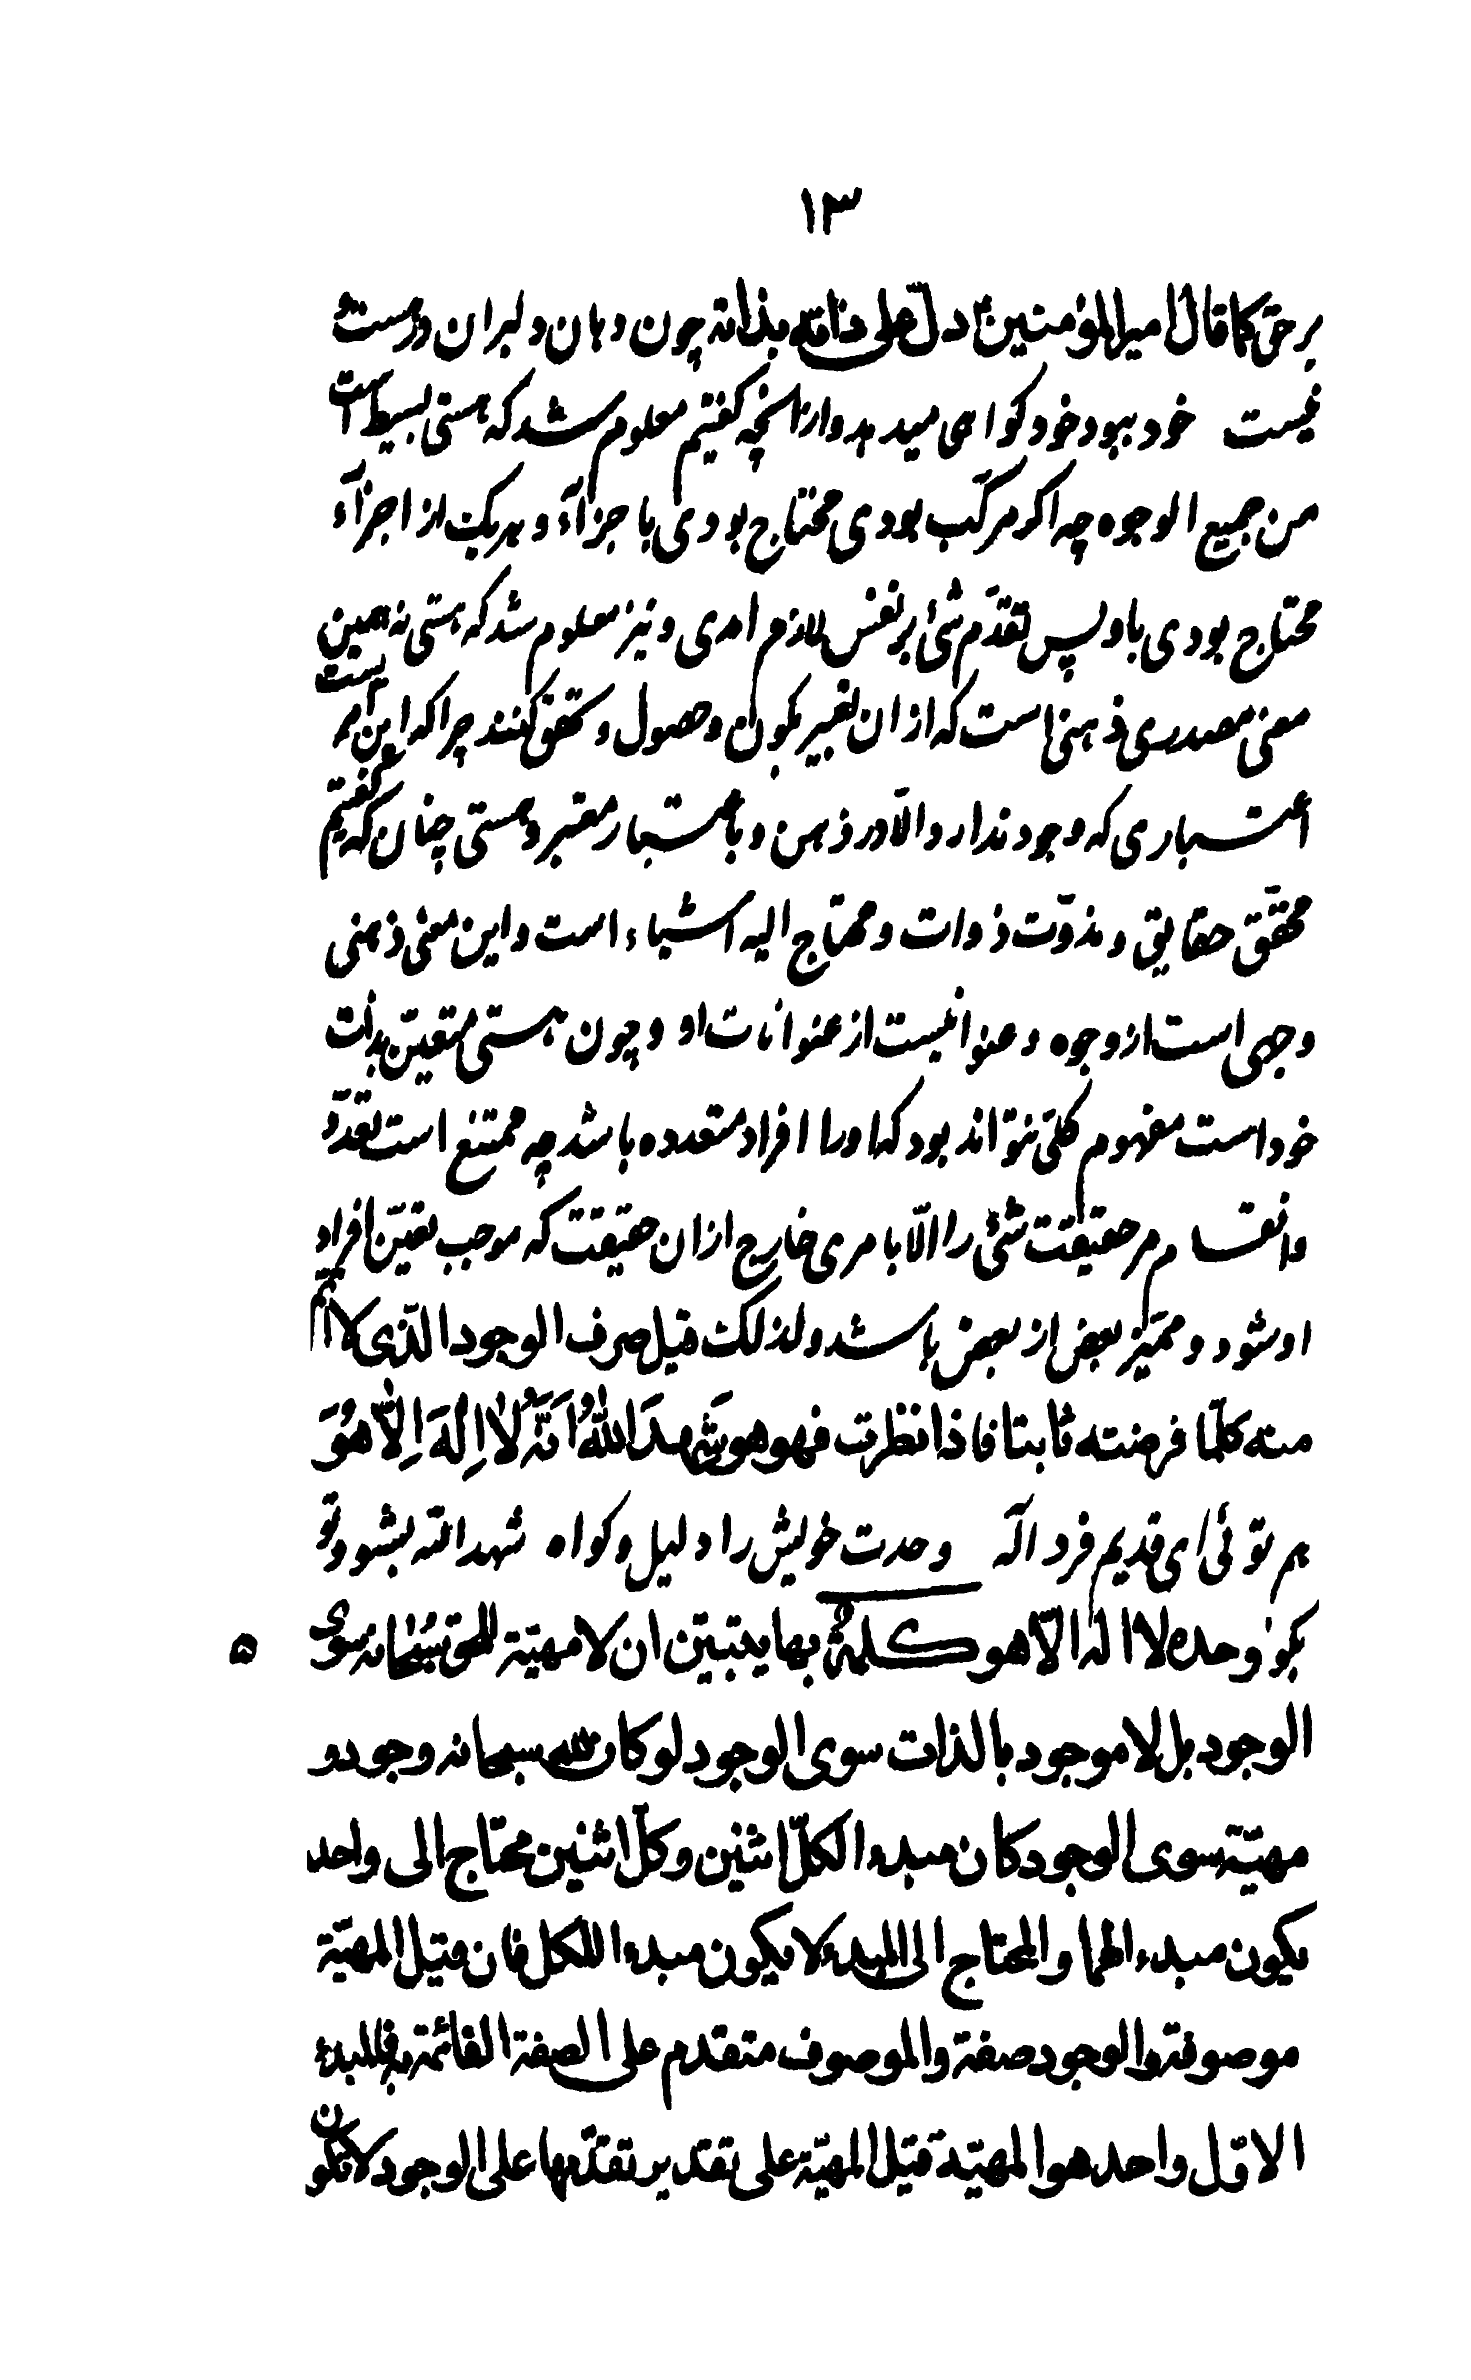 ۱۳
بر حق کما قال امیر المؤمنین ع دلّ علی ذاته بذاته چون دهان دلبران در هست و
نیست خود ببود خود کواهی میدهد و از انچه کفتیم معلوم شد که هستی بسیط است
من جمیع الوجوه چه اکر مرکّب بودی محتاج بودی باجزآء و هر یک از اجزآء
محتاج بودی باو پس تقدّم شئ بر نفس لازم امدی و نیز معلوم شد که هستی نه همین
معنی مصدری ذهنی است که از ان تعبیر بکون و حصول و تحقق کنند چرا که این امریست
اعتباری که وجود ندارد والّا در ذهن و باعتبار معتبر و هستی چنان که کفتیم
محقّق حقایق و مذوّت ذوات و محتاج الیه اشیاء است و این معنی ذهنی
وجهی است از وجوه و عنوانیست از عنوانات او و چون هستی متعیّن بذات
خود است مفهوم کلّی نتواند بود که او را افراد متعدده باشد چه ممتنع است تعدّد
و انقسام مر حقیقت شئ را الّا بامری خارج از ان حقیقت که موجب تعیّن افراد
او شود و ممیّز بعض از بعض باشد و لذلک قیل صرف الوجود الّذی لا اتمّ
منه کلّما فرضته ثابتا فاذا نظرت فهو هو شَهِدَ اللّٰهُ اَنَّهُ لٰا اِلٰهَ اِلّٰا هُوَ
هم توئی ای قدیم فرد اله وحدت خویش را دلیل و کواه شهد الله بشنو و تو
بکو وحده لا اله الّا هو کلمةٌ بها یتبیّن ان لا مهیّة للحق سُبْحٰانه سوی
۵
الوجود بل لا موجود بالذات سوی الوجود لو کان لله سبحانه وجود و
مهیّة سوی الوجود کان مبدء الکلّ اثنین و کلّ اثنین محتاج الی واحد
یکون مبدء لهما و المحتاج الی المبدء لا یکون مبدء للکل فان قیل المهیّة
موصوفة و الوجود صفة و الموصوف متقدم علی الصفة القائمة به فالمبدء
الاوّل واحد هو المهیّة قیل المهیّة علی تقدیر تقدّمها علی الوجود لا تکون